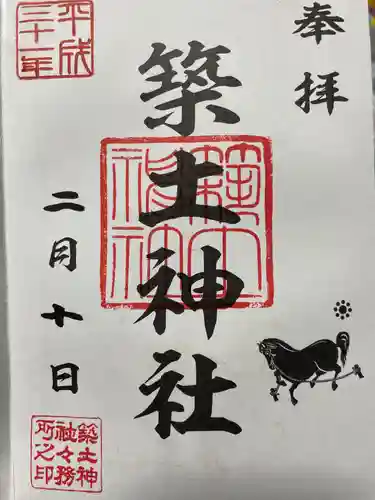 奉拝
築土神社
築土神社
平成三十一年
二月十日
築土神社々務所之印